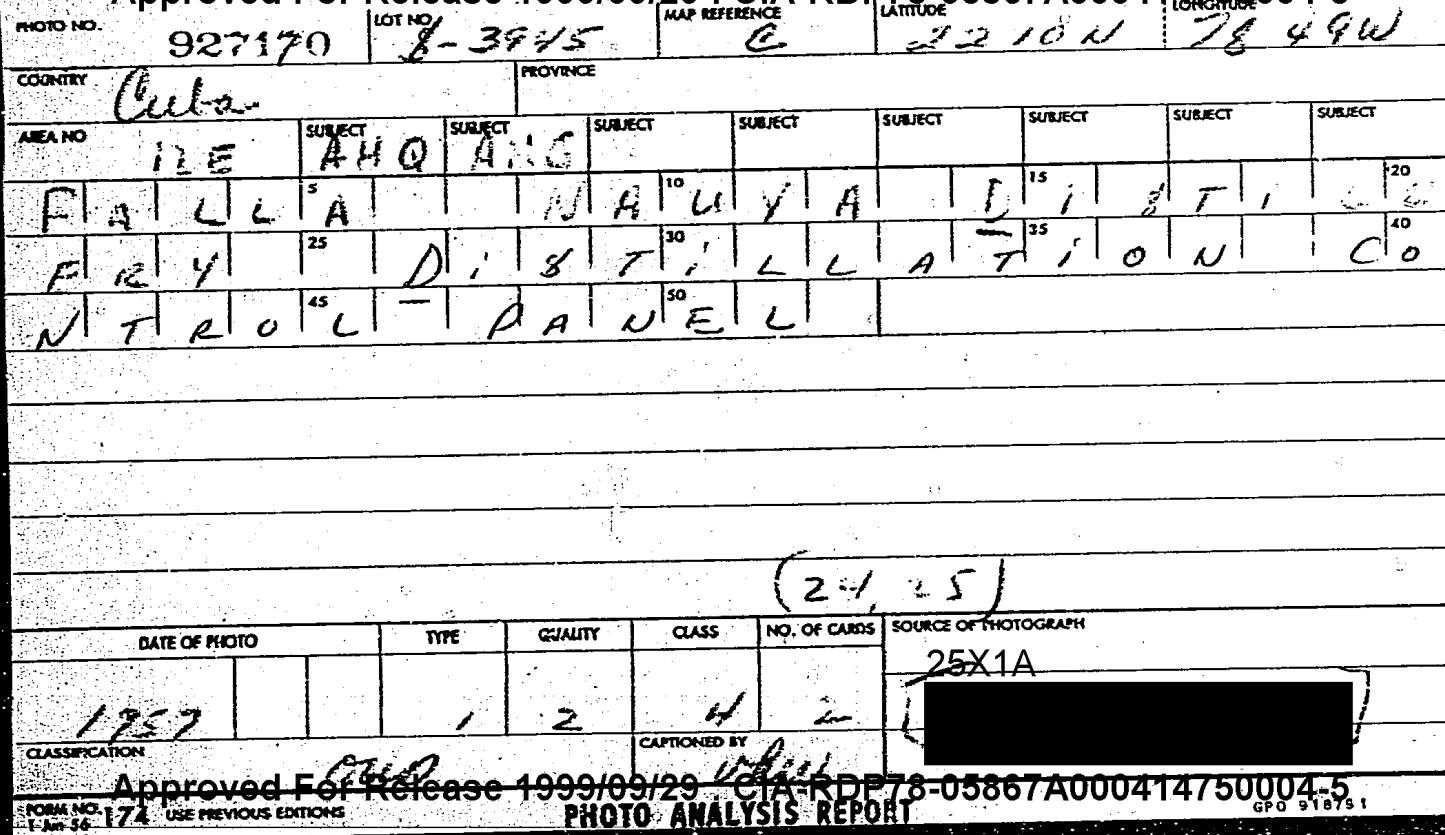 Approved For Release 1999/09/29 CIA-RDP78-05867A000414750004-5
PHOTO NO. 927170 LOT NO. 8-3945 MAP REFERENCE C LATITUDE 22 10 N LONGITUDE 78 49 W
COUNTRY Cuba PROVINCE
AREA NO SUBJECT AHQ SUBJECT AHG SUBJECT SUBJECT SUBJECT SUBJECT SUBJECT SUBJECT
5 10 15 20
FALLA NAUYA DISTI
25 30 35 40
FRY DISTILLATION CO
45 50
NTROL PANEL
DATE OF PHOTO TYPE QUALITY CLASS NO. OF CARDS SOURCE OF PHOTOGRAPH
25X1A
1 2 4 2
CLASSIFICATION CAPTIONED BY
Approved For Release 1999/09/29 CIA-RDP78-05867A000414750004-5
FORM NO. 174 USE PREVIOUS EDITIONS PHOTO ANALYSIS REPORT GPO 918751
1 Jun 56